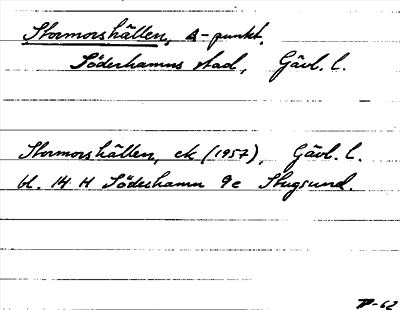 Stormorshällen, Δ-punkt.
Söderhamns stad, Gävl. l.
Stormorshällen, ek (1957), Gävl. l.
bl. 14 H Söderhamn 9e Stugsund.
-62